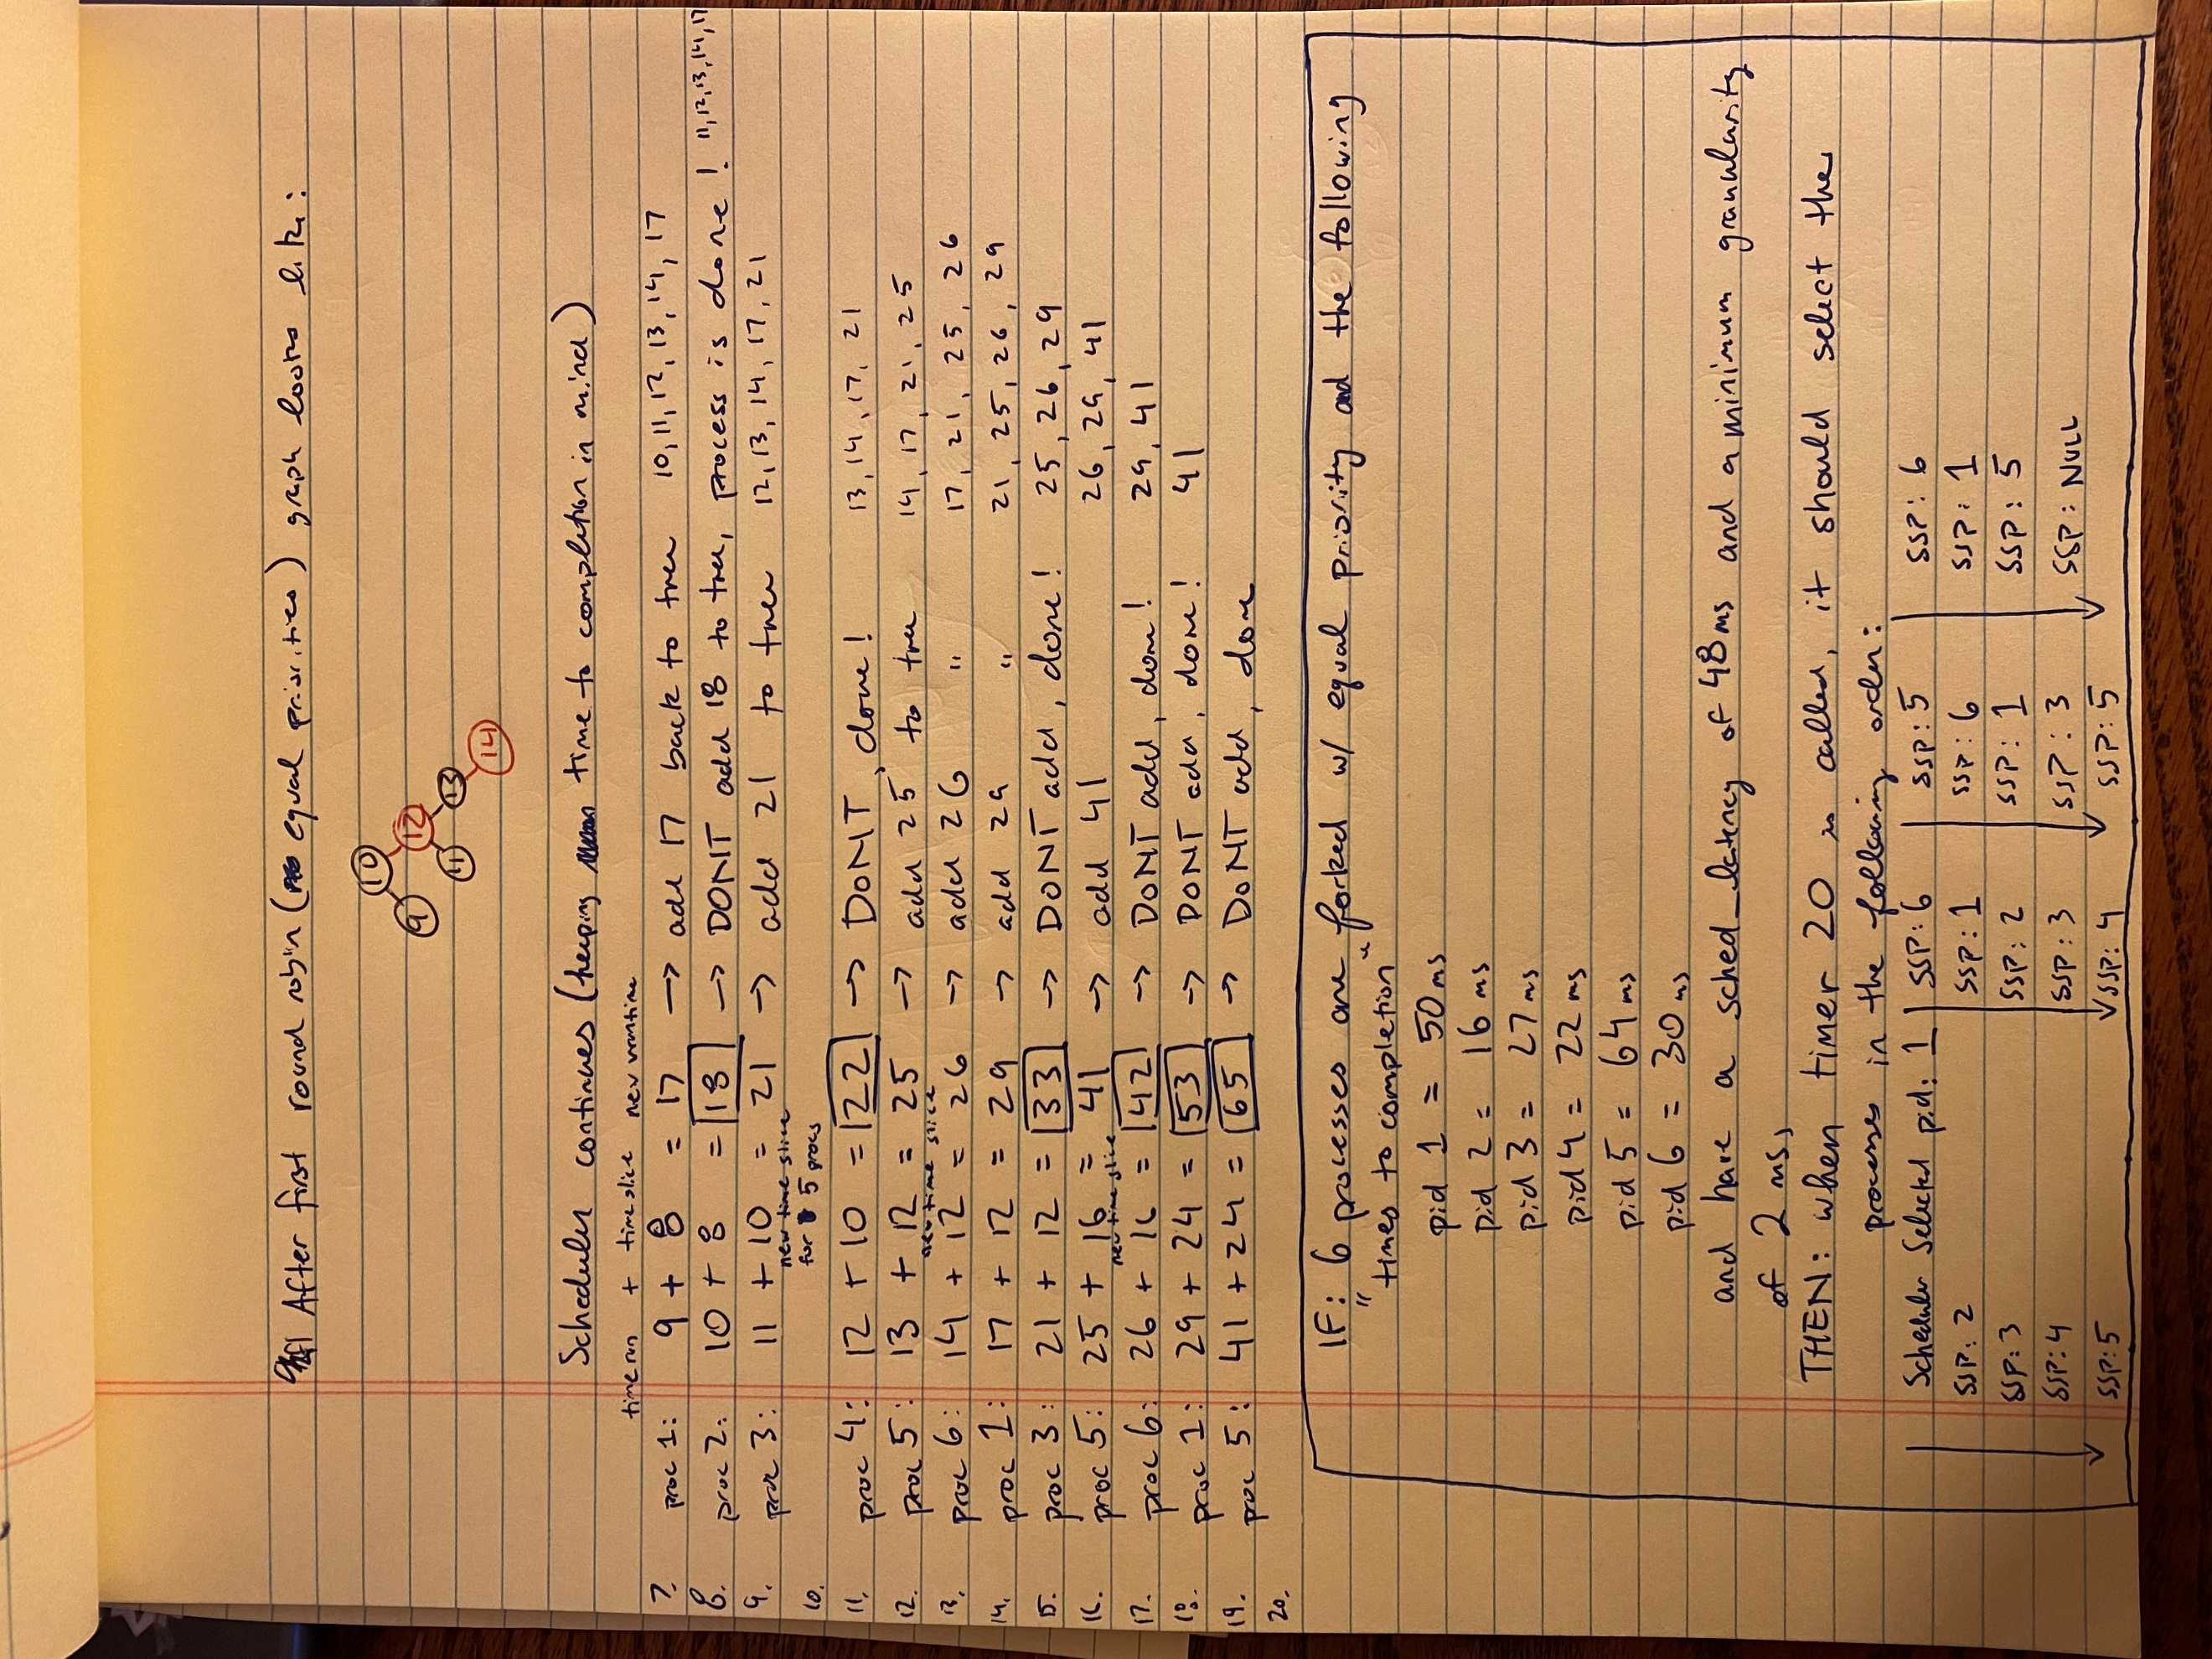 After first round robin (equal priorities) graph looks like:
10
9
12
11
13
14
Scheduler continues (keeping time to completion in mind)
time run + timeslice new vruntime
7. proc 1: 9 + 8 = 17 → add 17 back to tree 10, 11, 12, 13, 14, 17
8. proc 2: 10 + 8 = 18 → DONT add 18 to tree, process is done! 11, 12, 13, 14, 17
9. proc 3: 11 + 10 = 21 → add 21 to tree 12, 13, 14, 17, 21
10. new time slice
for 5 procs
11. proc 4: 12 + 10 = 22 → DONT, done! 13, 14, 17, 21
12. proc 5: 13 + 12 = 25 → add 25 to tree 14, 17, 21, 25
new time slice
13. proc 6: 14 + 12 = 26 → add 26 " 17, 21, 25, 26
14. proc 1: 17 + 12 = 29 → add 29 " 21, 25, 26, 29
15. proc 3: 21 + 12 = 33 → DONT add, done! 25, 26, 29
16. proc 5: 25 + 16 = 41 → add 41 26, 29, 41
new time slice
17. proc 6: 26 + 16 = 42 → DONT add, done! 29, 41
18. proc 1: 29 + 24 = 53 → DONT add, done! 41
19. proc 5: 41 + 24 = 65 → DONT add, done
20.
IF: 6 processes are forked w/ equal priority and the following
"times to completion"
pid 1 = 50 ms
pid 2 = 16 ms
pid 3 = 27 ms
pid 4 = 22 ms
pid 5 = 64 ms
pid 6 = 30 ms
and have a sched_latency of 48 ms and a minimum granularity
of 2 ms,
THEN: when timer 20 is called, it should select the
processes in the following order:
Scheduler Selected pid: 1
SSP: 2
SSP: 3
SSP: 4
SSP: 5
SSP: 6
SSP: 1
SSP: 2
SSP: 3
SSP: 4
SSP: 5
SSP: 6
SSP: 1
SSP: 3
SSP: 5
SSP: 6
SSP: 1
SSP: 5
SSP: NULL